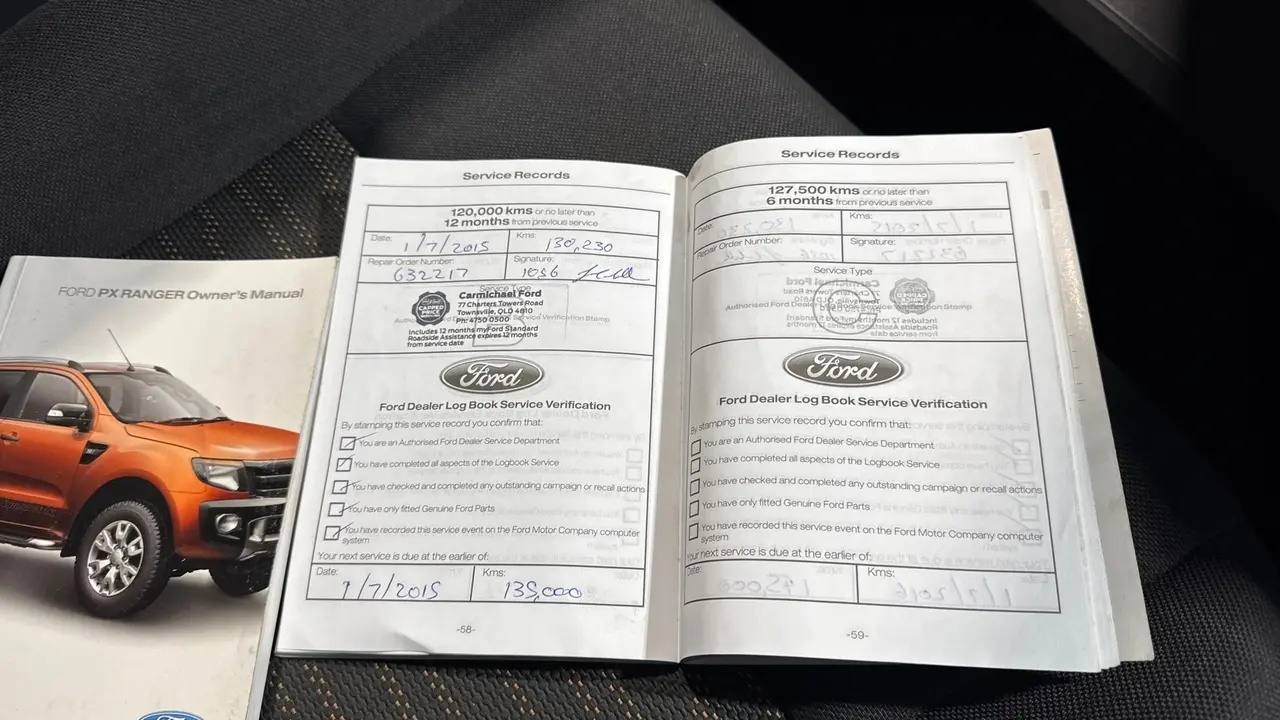 FORD PX RANGER Owner's Manual
Ford
Service Records
120,000 kms or no later than
12 months from previous service
Date: 1/7/2015 Kms: 130,230
Repair Order Number: 632217 Signature: 1056
Service Type
CAPPED PRICE
Carmichael Ford
77 Charters Towers Road
Townsville, QLD 4810
Ph: 4750 0500
Service Verification Stamp
Includes 12 months myFord Standard
Roadside Assistance expires 12 months
from service date
Ford
Ford Dealer Log Book Service Verification
By stamping this service record you confirm that:
You are an Authorised Ford Dealer Service Department
You have completed all aspects of the Logbook Service
You have checked and completed any outstanding campaign or recall actions
You have only fitted Genuine Ford Parts
You have recorded this service event on the Ford Motor Company computer
system
Your next service is due at the earlier of:
Date: 1/7/2015 Kms: 135,000
-58-
Service Records
127,500 kms or no later than
6 months from previous service
Date: Kms:
Repair Order Number: Signature:
Service Type
Authorised Ford Dealer Log Book Service Verification Stamp
Ford
Ford Dealer Log Book Service Verification
By stamping this service record you confirm that:
You are an Authorised Ford Dealer Service Department
You have completed all aspects of the Logbook Service
You have checked and completed any outstanding campaign or recall actions
You have only fitted Genuine Ford Parts
You have recorded this service event on the Ford Motor Company computer
system
Your next service is due at the earlier of:
Date: Kms:
-59-